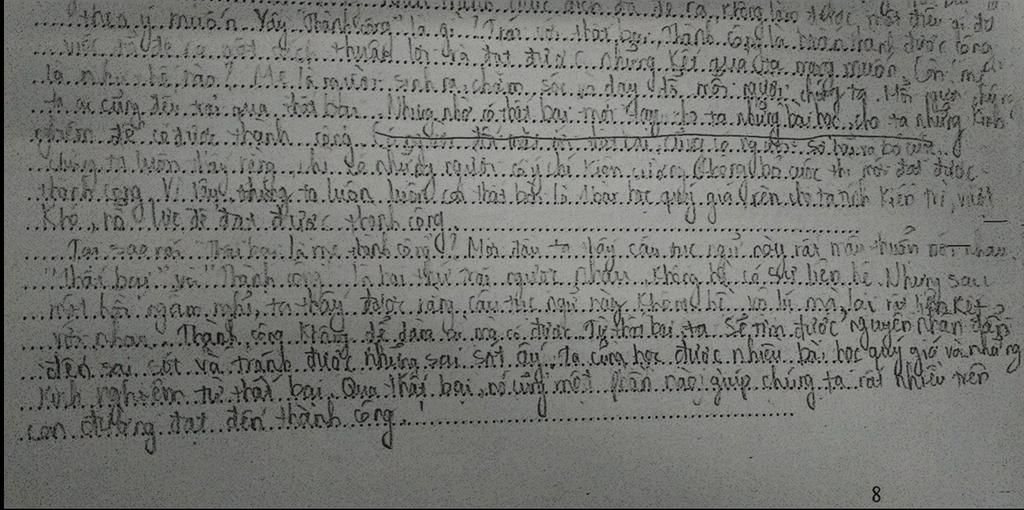 theo ý muốn. Vậy "Thành công" là gì? Trái với thất bại, thành công là hoàn thành được công
việc đề ra một cách thuận lợi và đạt được những kết quả ta mong muốn. Còn mẹ
là như thế nào? Mẹ là người sinh ra, chăm sóc và dạy dỗ mỗi người chúng ta. Mỗi người chúng
ta ai cũng đều trải qua thất bại. Nhưng nhờ có thất bại mới dạy cho ta những bài học, cho ta những kinh
nghiệm để có được thành công.
chúng ta luôn thấy rằng, chỉ có những người có ý chí kiên cường không bỏ cuộc thì mới đạt được
thành công. Vì vậy, chúng ta luôn luôn coi thất bại là 1 bài học quý giá rèn cho ta tính kiên trì, vượt
khó, nỗ lực để đạt được thành công.
Tại sao nói "Thất bại là mẹ thành công"? Mới đầu ta thấy câu tục ngữ này rất mâu thuẫn với nhau.
"Thất bại" và "Thành công" là hai thứ trái ngược nhau, không hề có sự liên hệ. Nhưng sau
một hồi ngẫm nghĩ, ta thấy được rằng câu tục ngữ này không hề vô lý mà lại rất liên kết
với nhau. Thành công không dễ dàng mà có được. Từ thất bại ta sẽ tìm được nguyên nhân dẫn
đến sai sót và tránh được những sai sót ấy, ta cũng học được nhiều bài học quý giá và những
kinh nghiệm từ thất bại. Qua thất bại, nó cũng một phần nào giúp chúng ta rất nhiều trên
con đường đạt đến thành công.
8